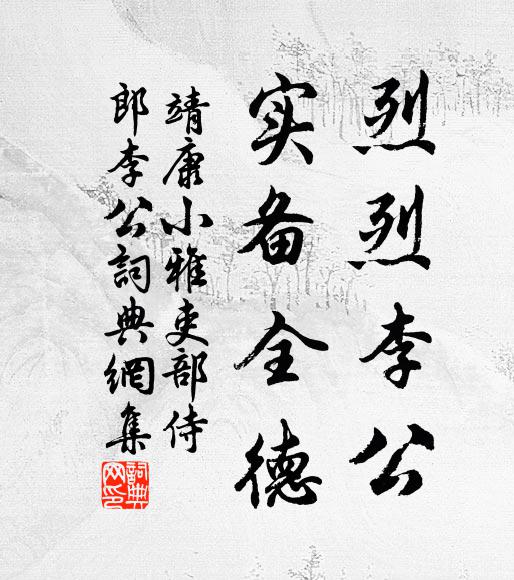 烈烈李公
实备全德
靖康小雅吏部侍
郎李公詞典網集
詞典网印